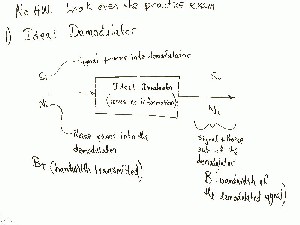 No HW. Look over the practice exam
1) Ideal Demodulator
Signal power into demodulator
Si
So
Ideal Demodulator
Ni
(loses no information)
No
Noise power into the
demodulator
signal & noise
out of the
demodulator
BT (bandwidth transmitted)
B: bandwidth of
the demodulated signal